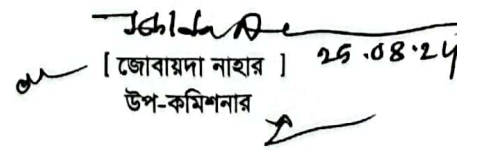 [ জোবায়দা নাহার ] 25.08.24
উপ-কমিশনার